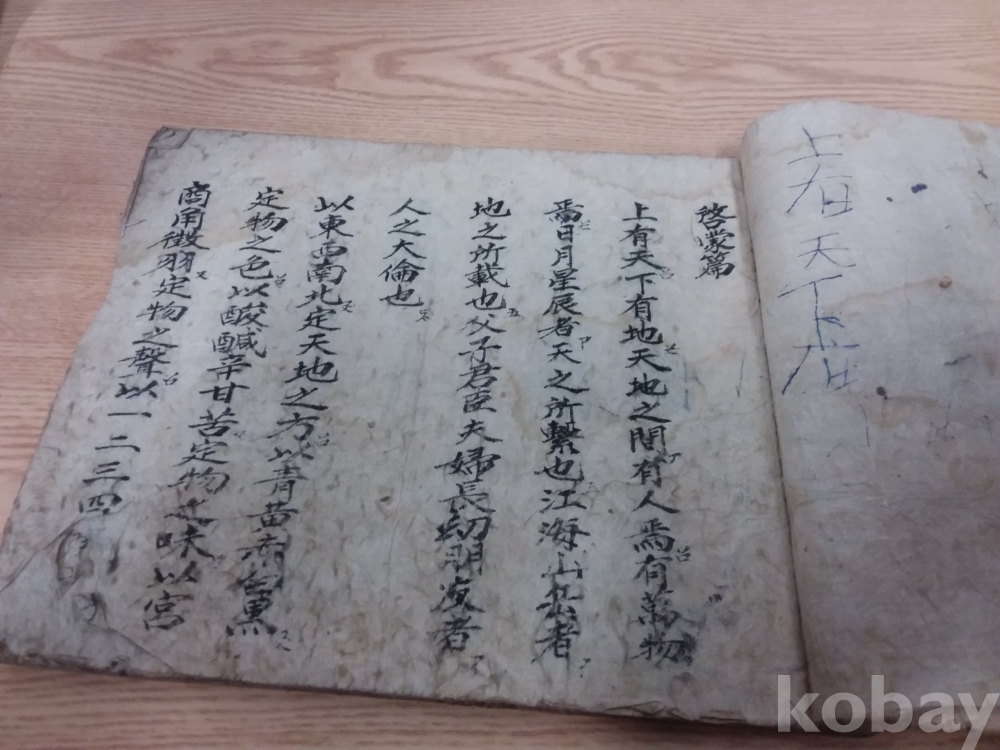 上有天下有
啓蒙篇
上有天下有地天地之間有人焉有萬物
焉日月星辰者天之所繫也江海山岳者
地之所載也父子君臣夫婦長幼朋友者
人之大倫也
以東西南北定天地之方以青黃赤白黑
定物之色以酸鹹辛甘苦定物之味以宮
商角徵羽定物之聲以一二三四
kobay